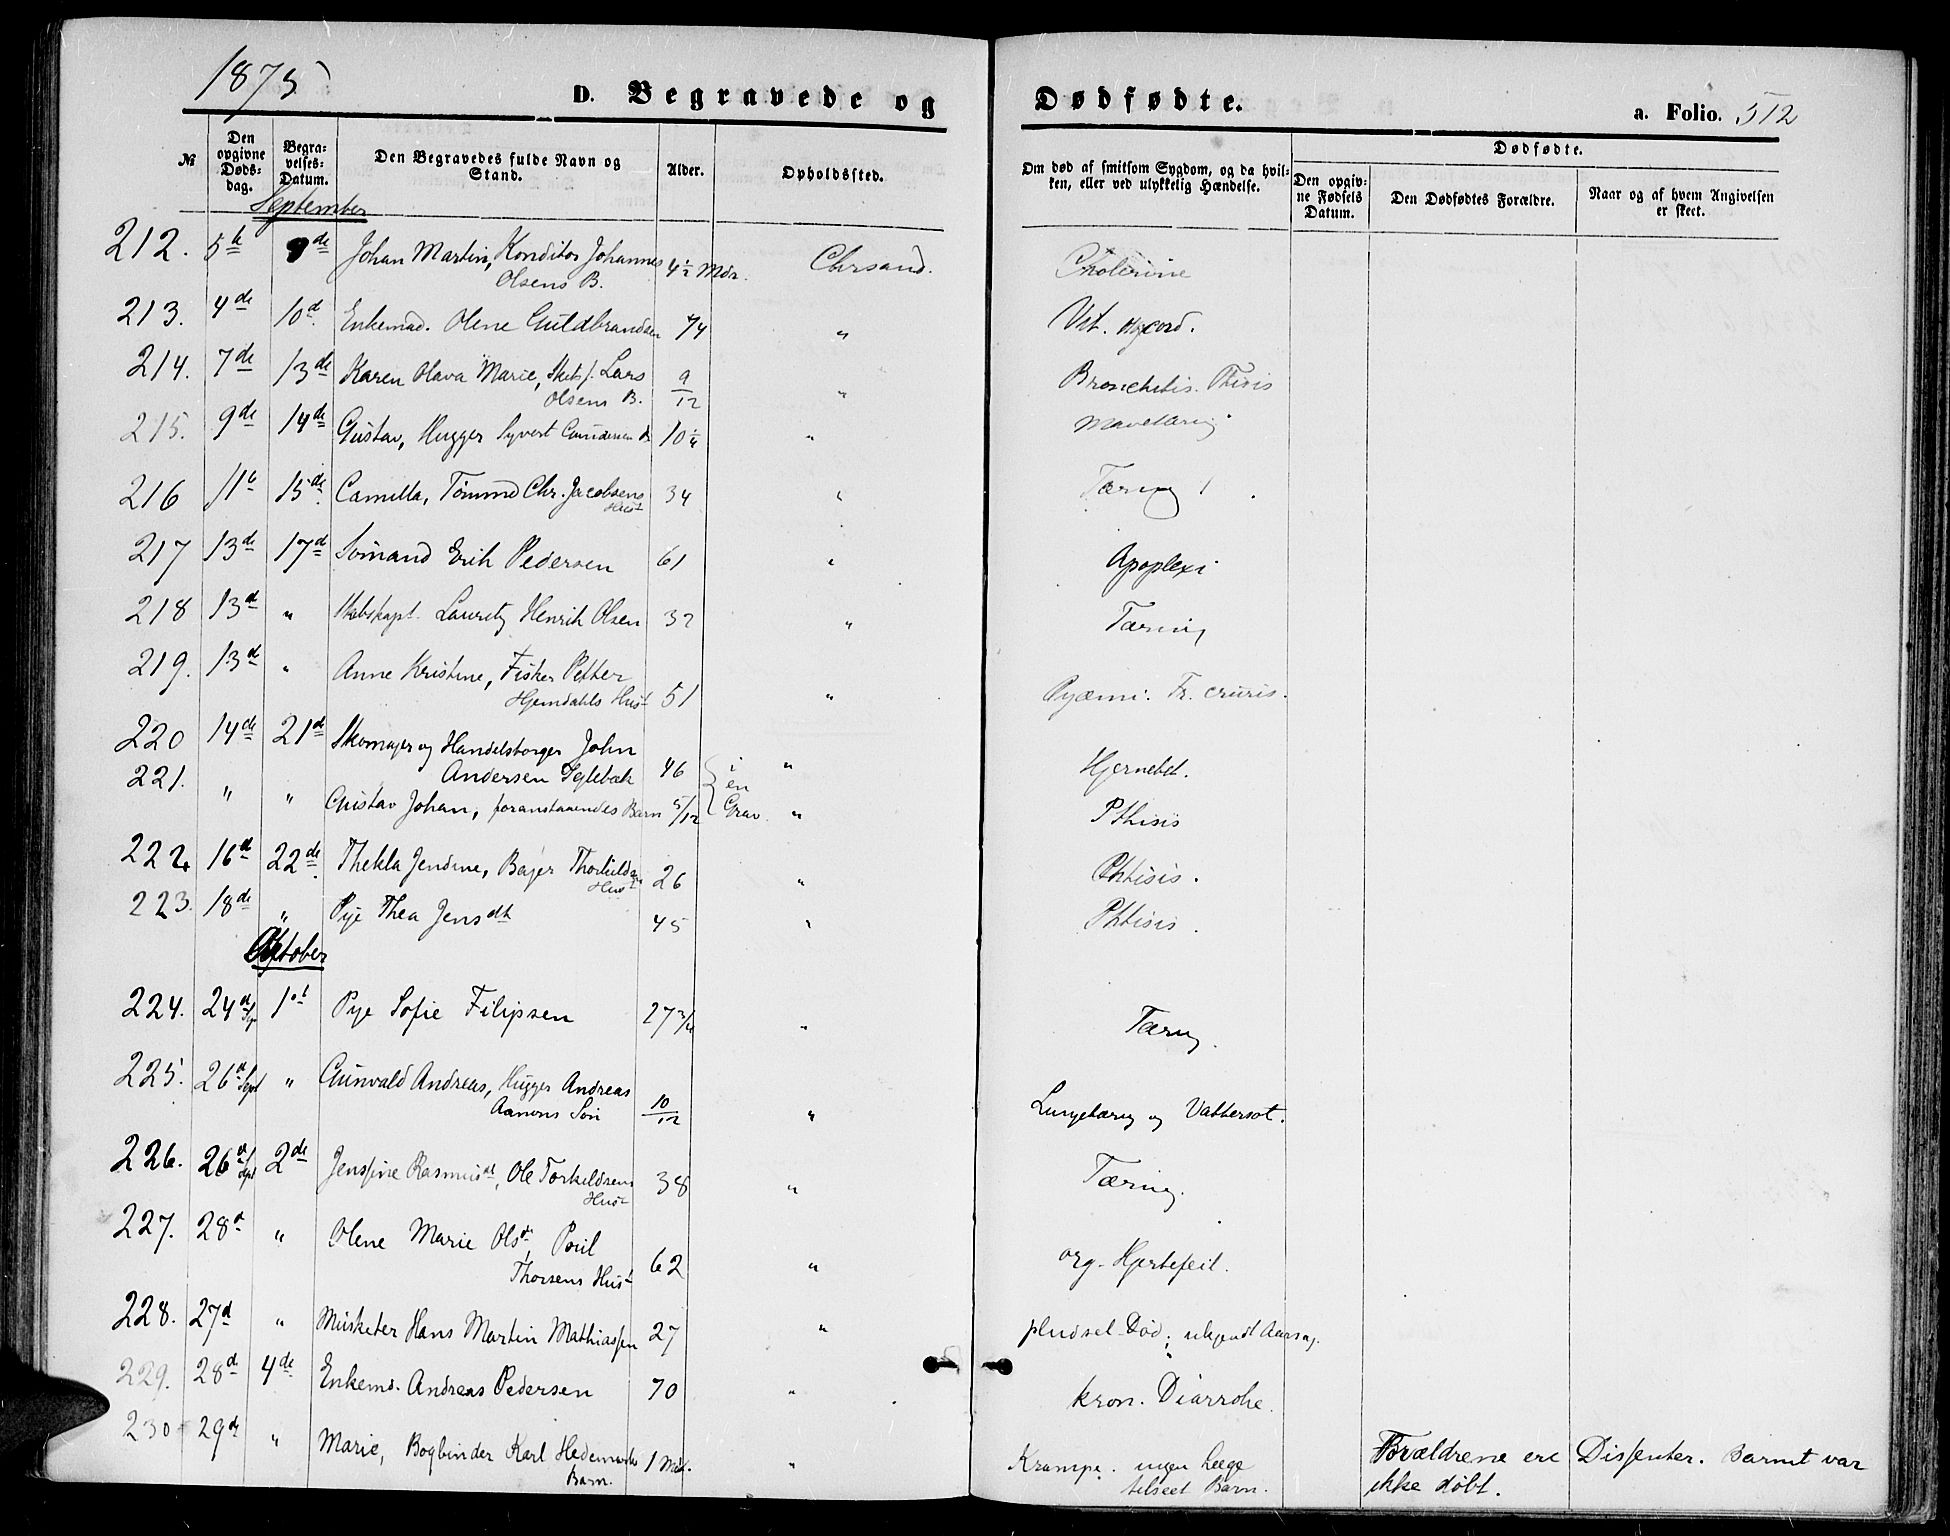 1875
D. Begravede og Dødfødte.
a. Folio. 512
№
Den opgivne Døds-dag.
Begra-velses-Datum.
Den Begravedes fulde Navn og Stand.
Alder.
Opholdssted.
Om død af smitsom Sygdom, og da hvil-ken, eller ved ulykkelig Hændelse.
Dødfødte.
Den opgiv-ne Fødsels Datum.
Den Dødfødtes Forældre.
Naar og af hvem Angivelsen er skeet.
September
212. 5te 9de Johan Martin, Konditor Johannes 4½ Mdr. Chrsand. Cholerine
Olsens B.
213. 4de 10d Enkemad. Olene Guldbrandsen 74 " Vit. cord.
214. 7de 13de Karen Olava Marie, Lars 9/12 " Bronchitis. Thisis
Olsens B.
215. 9de 14de Gustav, Hugger Syvert Gundersen B 10 " Mavetæring
216 11te 15de Camilla, Tømmd Chr. Jacobsens 34 " Tæring
Hust
217 13de 17d Sømand Erik Pedersen 61 " Apoplexi
218 13d " Skibskapt. Lauritz Henrik Olsen 32 " Tæring
219. 13d " Anne Kristine, Fisker Petter
Hjemdahls Hust 51 " Pyæmi. Fr. cruris.
220 14de 21d Skomager og Handelsborger John
Andersen Eglebæk 46 i " Hjernebet.
221. " " Gustav Johan, foranstaaendes Barn 5/12 en Grav " Pthisis
222 16d 22de Thekla Jendine, Bajer Thorkildsen 26 " Phtisis.
Hust
223. 18de " Pige Thea Jensdt 45 " Phtisis.
Oktober
224. 24d Sep 1st Pige Sofie Filipsen 27 " Tæring.
225. 26d Sept " Gunvald Andreas, Hugger Andreas
Aanons Søn 10/12 " Lungetæring og Vattersot.
226. 26d Sept 2de Jensine Rasmusdt, Ole Torkildsens 38 " Tæring.
Hust
227. 28d " Olene Marie Olsdt, Poul
Thorsens Hust 62 " org. Hjertefeil.
228. 27d " Musketer Hans Martin Mathiassen 27 " pludsel. Død; ukjendt Aarsag.
229. 28d 4de Enkemd. Andreas Pedersen 70 " kron. Diarrohe.
230 29de " Marie, Bogbinder Karl Hedemarks 1 Md. " Krampe. ingen Læge Forældrene ere Dissenter. Barnet var
Barn. tilseet Barn. ikke døbt.